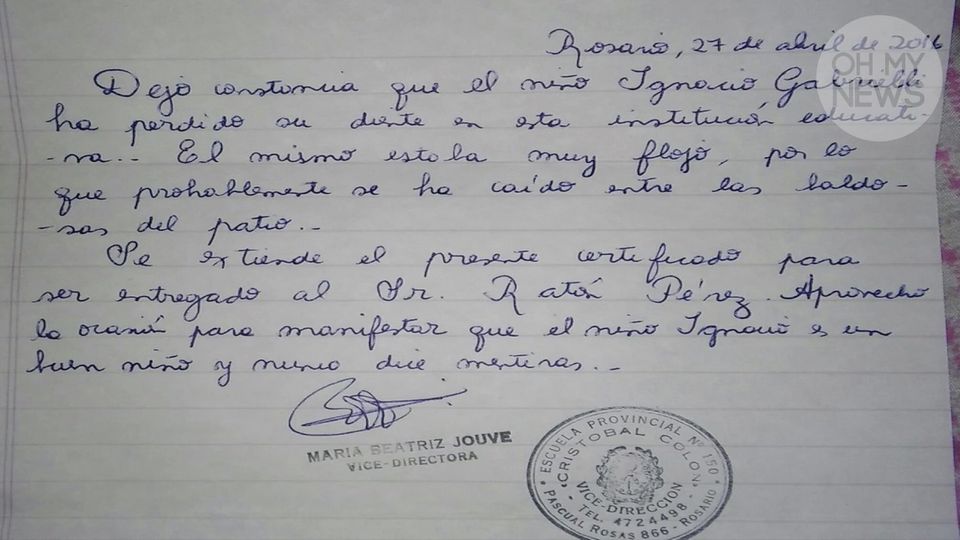 Rosario, 27 de abril de 2016
OH MY
NEWS
Dejo constancia que el niño Ignacio Gabrielli
ha perdido su diente en esta institución educati-
-va.. El mismo estaba muy flojo, por lo
que probablemente se ha caído entre las baldo-
-sas del patio..
Se extiende el presente certificado para
ser entregado al Sr. Ratón Pérez. Aprovecho
la ocasión para manifestar que el niño Ignacio es un
buen niño y nunca dice mentiras..
MARIA BEATRIZ JOUVE
VICE-DIRECTORA
ESCUELA PROVINCIAL Nº 150
"CRISTOBAL COLON"
VICE-DIRECCION
- TEL. 4724498 -
PASCUAL ROSAS 866 - ROSARIO